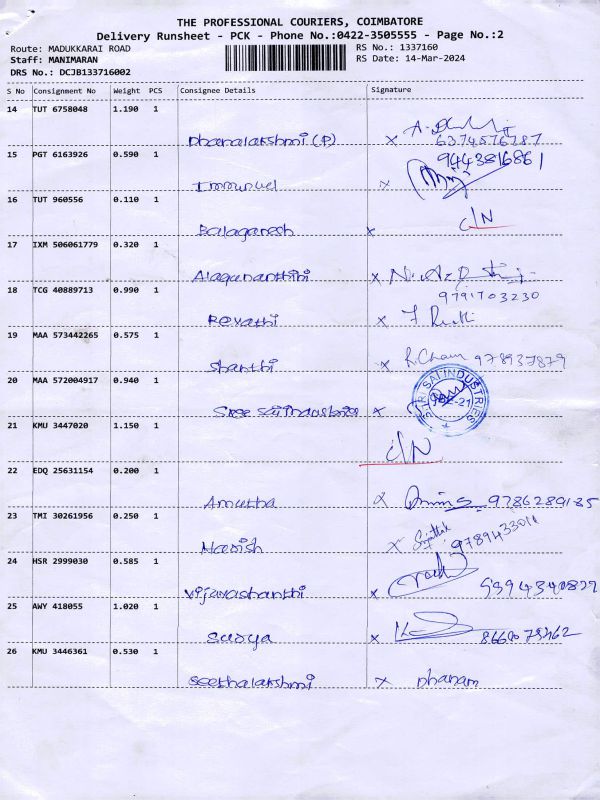 THE PROFESSIONAL COURIERS, COIMBATORE
Delivery Runsheet - PCK - Phone No.:0422-3505555 - Page No.:2
Route: MADUKKARAI ROAD RS No.: 1337160
Staff: MANIMARAN RS Date: 14-Mar-2024
DRS No.: DCJB133716002
S No Consignment No Weight PCS Consignee Details Signature
14 TUT 6758048 1.190 1
Dhanalakshmi (P) x 6374576787
15 PGT 6163926 0.590 1 9443816861
Immanuel x
16 TUT 960556 0.110 1 C/N
Balaganesh x
17 IXM 506061779 0.320 1
Alagunanthini x
18 TCG 40889713 0.990 1 9791703230
Revathi x
19 MAA 573442265 0.575 1
Shanthi x 978937879
20 MAA 572004917 0.940 1 SRI SAI INDUSTRIES
Sree x
21 KMU 3447020 1.150 1 C/N
22 EDQ 25631154 0.200 1
Amutha x 9786289185
23 TMI 30261956 0.250 1
Harish x 9789433011
24 HSR 2999030 0.585 1
Vijayashanthi x
25 AWY 418055 1.020 1
Surya x
26 KMU 3446361 0.530 1
Seethalakshmi x Dhanam